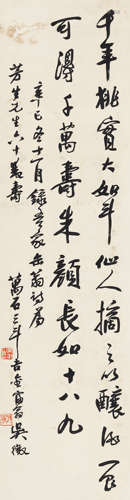 千年桃實大如斗仙人摘之以釀酒一食
可得千萬壽朱顏長如十八九
芳生先生六十萬壽
辛巳冬十一月錄吾家缶翁詩為
萬石三斗吉金富翁吳徵